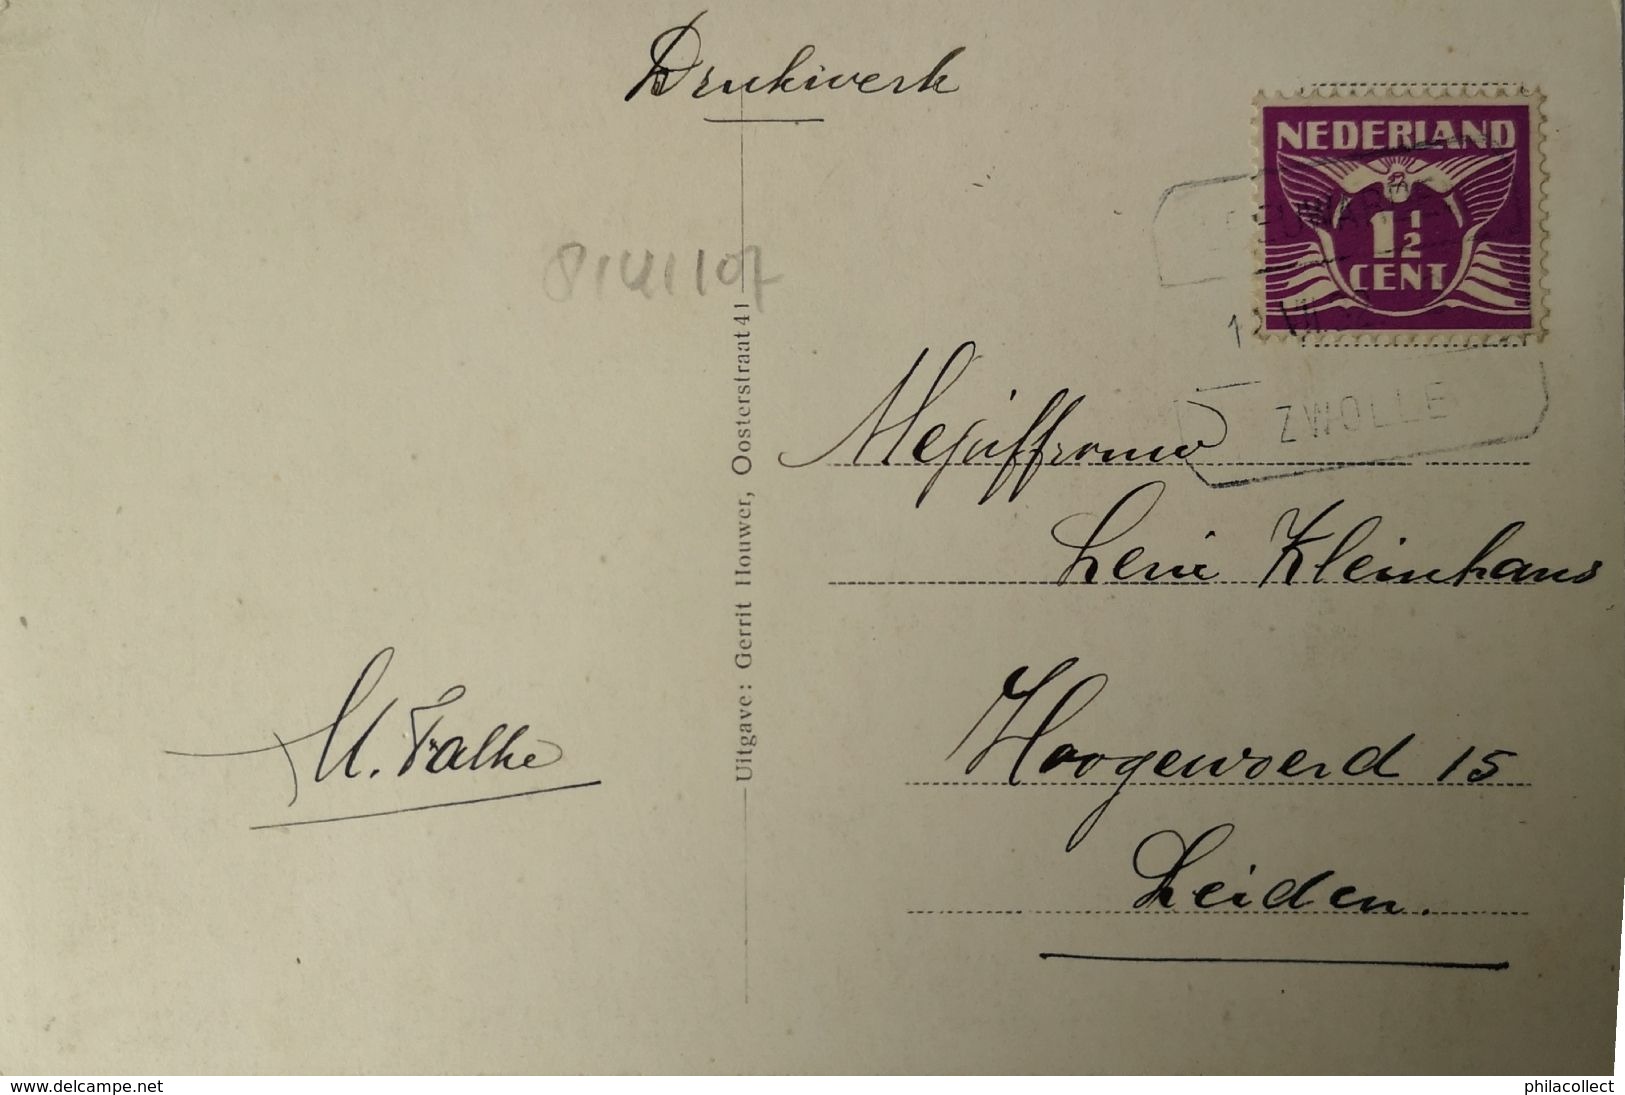 Drukwerk
NEDERLAND
1½
CENT
ZWOLLE
81411107
Uitgave: Gerrit Houwer, Oosterstraat 41
Mejuffrouw
Leni Kleinhans
Hoogewoerd 15
Leiden.
M. Falke
www.delcampe.net
philacollect